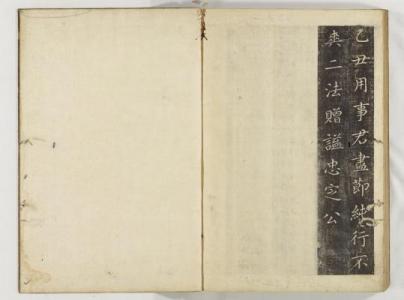 己丑用事君盡節純行不
爽二法贈謚忠定公